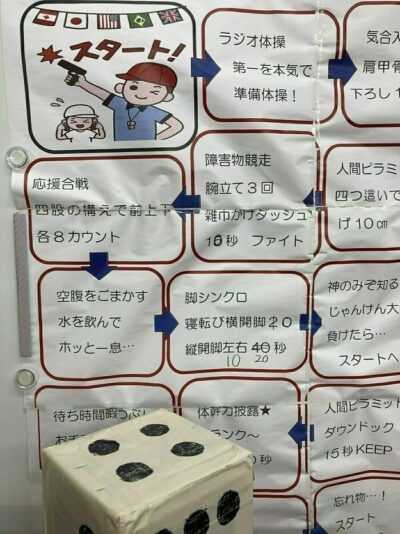 スタート!
ラジオ体操
第一を本気で
準備体操!
気合入
肩甲骨
下ろし1
応援合戦
四股の構えで前上下
各8カウント
障害物競走
腕立て3回
雑巾がけダッシュ
10秒 ファイト
人間ピラミ
四つ這いで
げ10㎝
空腹をごまかす
水を飲んで
ホッと一息…
脚シンクロ
寝転び横開脚20
縦開脚左右40秒
10 20
神のみぞ知る
じゃんけん大
負けたら…
スタートへ
待ち時間暇つぶし
体幹力披露★
ランク~
0秒
人間ピラミッド
ダウンドック
15秒KEEP
忘れ物…!
スタート